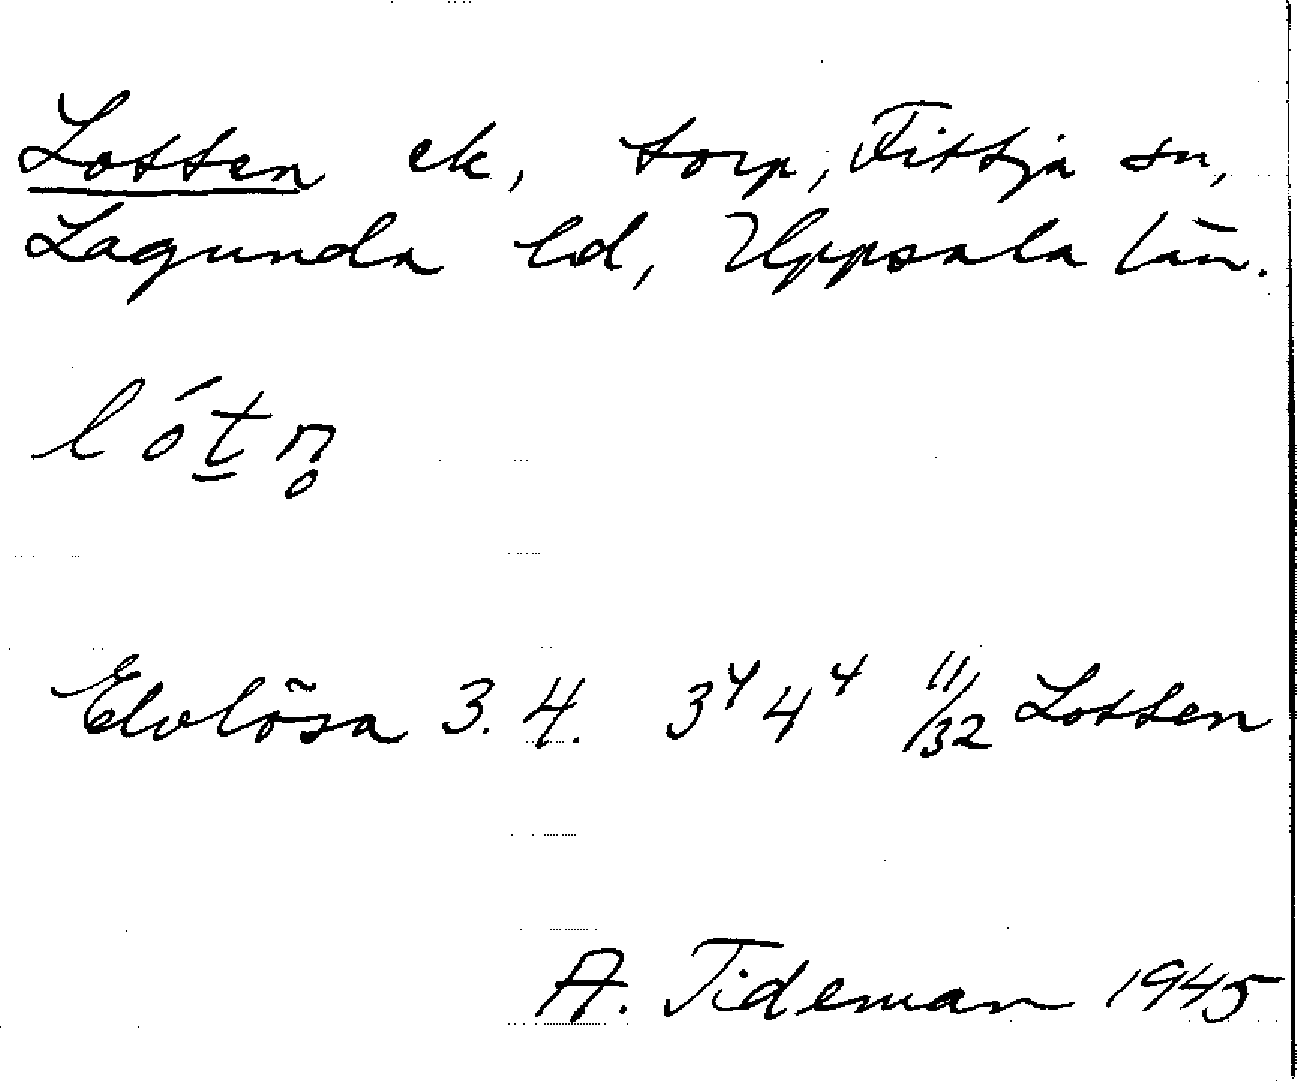 Lotten ek, torp, Fittja sn,
Lagunda hd, Uppsala län.
lót̲n̥
Elvlösa 3. 4. 3⁴ 4⁴ 11/32 Lotten
A. Tideman 1945